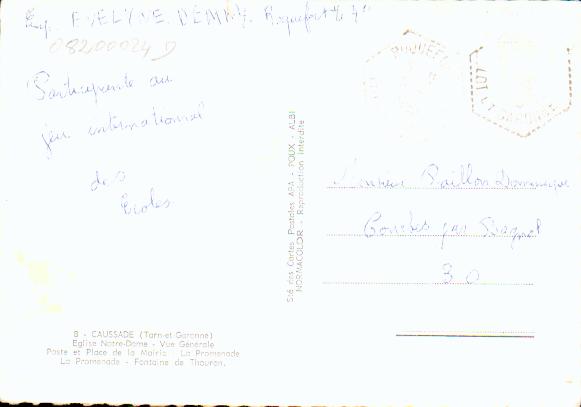 Exp. EVELYNE DEMMY. Roquefort le 4
08200024 D
Participante au
jeu international
des
Ecoles
ROQUEFO
Monsieur Paillon Dominique
par
30
Sté des Cartes Postales APA - POUX - ALBI
NORMACOLOR - Reproduction interdite
8 - CAUSSADE (Tarn-et-Garonne)
Eglise Notre-Dame - Vue Générale
Poste et Place de la Mairie La Promenade
La Promenade - Fontaine de Thouron.